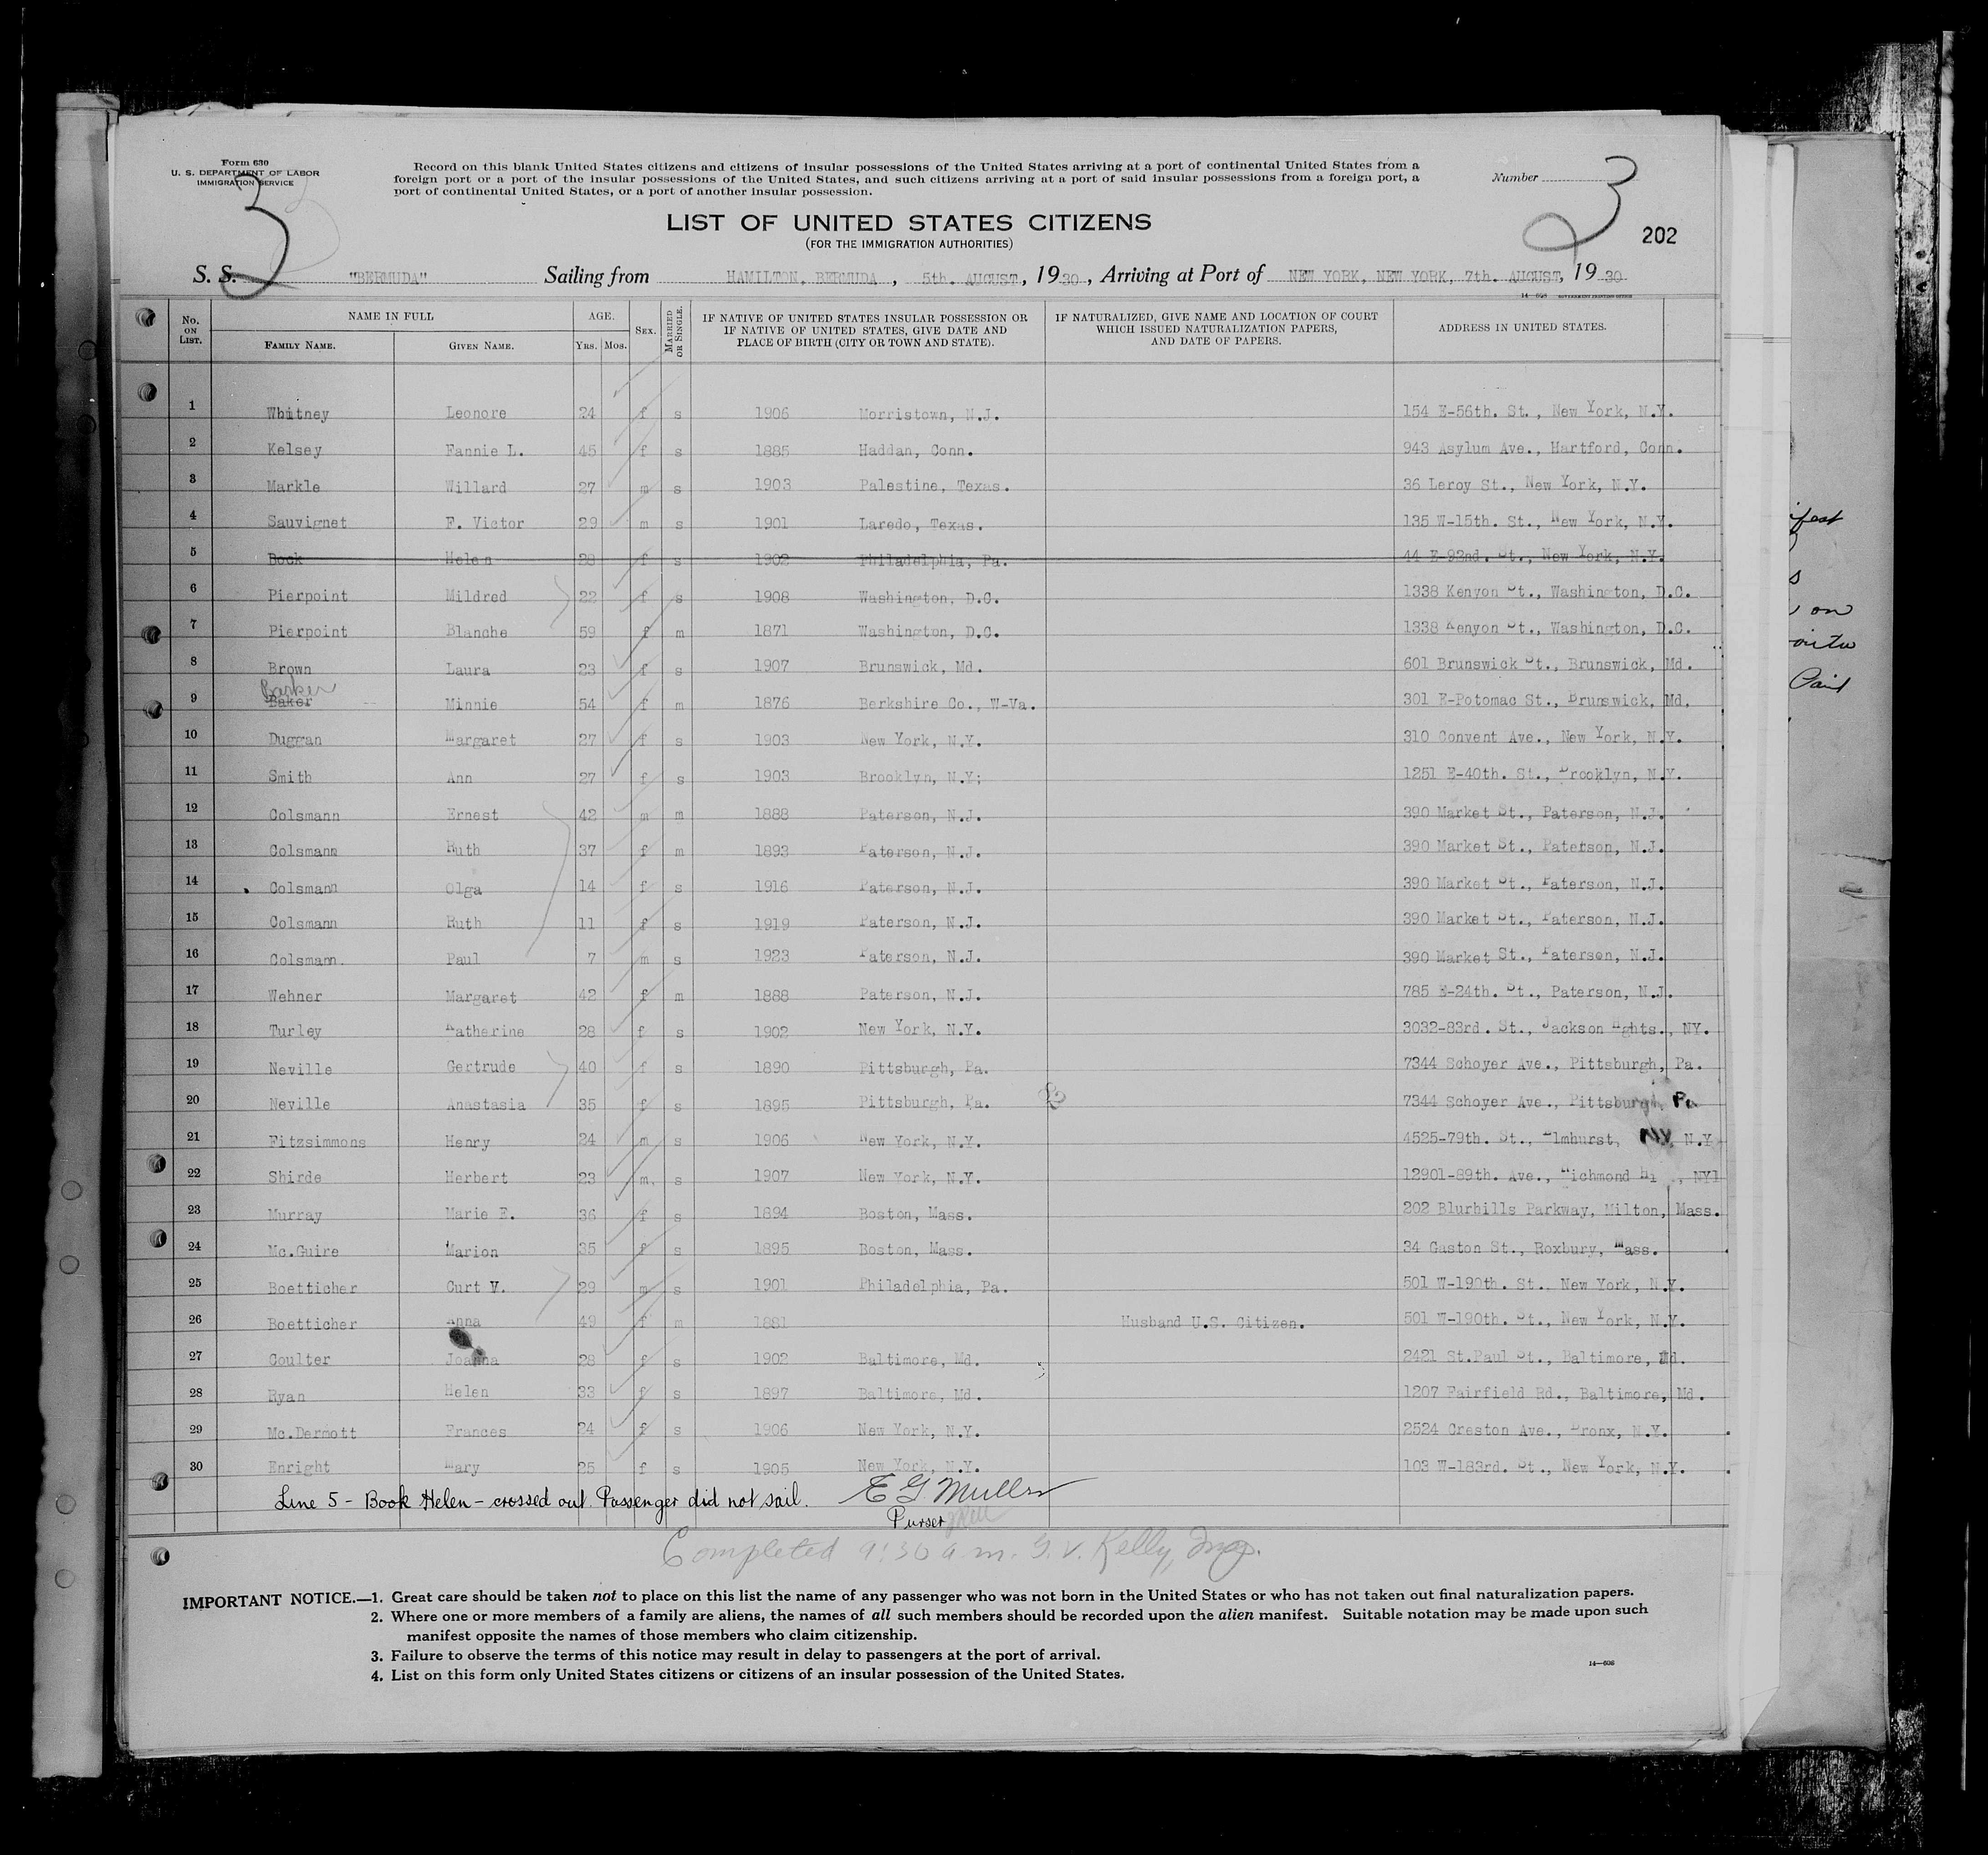 Form 630
U. S. DEPARTMENT OF LABOR
IMMIGRATION SERVICE
Record on this blank United States citizens and citizens of insular possessions of the United States arriving at a port of continental United States from a
foreign port or a port of the insular possessions of the United States, and such citizens arriving at a port of said insular possessions from a foreign port, a
port of continental United States, or a port of another insular possession.
Number
3 3
LIST OF UNITED STATES CITIZENS
(FOR THE IMMIGRATION AUTHORITIES)
202
S. S. "BERMUDA" Sailing from HAMILTON, BERMUDA , 5th. AUGUST, 1930, Arriving at Port of NEW YORK, NEW YORK, 7th. AUGUST, 1930
No. ON LIST. NAME IN FULL FAMILY NAME. GIVEN NAME. AGE. YRS. MOS. SEX. MARRIED OR SINGLE. IF NATIVE OF UNITED STATES INSULAR POSSESSION OR IF NATIVE OF UNITED STATES, GIVE DATE AND PLACE OF BIRTH (CITY OR TOWN AND STATE). IF NATURALIZED, GIVE NAME AND LOCATION OF COURT WHICH ISSUED NATURALIZATION PAPERS, AND DATE OF PAPERS. ADDRESS IN UNITED STATES.
1 Whitney Leonore 24 f s 1906 Morristown, N.J. 154 E-56th. St., New York, N.Y.
2 Kelsey Fannie L. 45 f s 1885 Haddan, Conn. 943 Asylum Ave., Hartford, Conn.
3 Markle Willard 27 m s 1903 Palestine, Texas. 36 Leroy St., New York, N.Y.
4 Sauvignet F. Victor 29 m s 1901 Laredo, Texas. 135 W-15th. St., New York, N.Y.
5 Book Helen 28 f s 1902 Philadelphia, Pa. 44 E-92nd. St., New York, N.Y.
6 Pierpoint Mildred 22 f s 1908 Washington, D.C. 1338 Kenyon St., Washington, D.C.
7 Pierpoint Blanche 59 f m 1871 Washington, D.C. 1338 Kenyon St., Washington, D.C.
8 Brown Laura 23 f s 1907 Brunswick, Md. 601 Brunswick St., Brunswick, Md.
Barker
9 Baker Minnie 54 f m 1876 Berkshire Co., W-Va. 301 E-Potomac St., Brunswick, Md.
10 Duggan Margaret 27 f s 1903 New York, N.Y. 310 Convent Ave., New York, N.Y.
11 Smith Ann 27 f s 1903 Brooklyn, N.Y; 1251 E-40th. St., Brooklyn, N.Y.
12 Colsmann Ernest 42 m m 1888 Paterson, N.J. 390 Market St., Paterson, N.J.
13 Colsmann Ruth 37 f m 1893 Paterson, N.J. 390 Market St., Paterson, N.J.
14 Colsmann Olga 14 f s 1916 Paterson, N.J. 390 Market St., Paterson, N.J.
15 Colsmann Ruth 11 f s 1919 Paterson, N.J. 390 Market St., Paterson, N.J.
16 Colsmann. Paul 7 m s 1923 Paterson, N.J. 390 Market St., Paterson, N.J.
17 Wehner Margaret 42 f m 1888 Paterson, N.J. 785 E-24th. St., Paterson, N.J.
18 Turley Katherine 28 f s 1902 New York, N.Y. 3032-83rd. St., Jackson Hghts., NY.
19 Neville Gertrude 40 f s 1890 Pittsburgh, Pa. 7344 Schoyer Ave., Pittsburgh, Pa.
20 Neville Anastasia 35 f s 1895 Pittsburgh, Pa. 7344 Schoyer Ave., Pittsburgh, Pa
21 Fitzsimmons Henry 24 m s 1906 New York, N.Y. 4525-79th. St., Elmhurst, NY, N.Y
22 Shirde Herbert 23 m. s 1907 New York, N.Y. 12901-89th. Ave., Richmond Hi , NY1
23 Murray Marie E. 36 f s 1894 Boston, Mass. 202 Blurhills Parkway, Milton, Mass.
24 Mc.Guire Marion 35 f s 1895 Boston, Mass. 34 Gaston St., Roxbury, Mass.
25 Boetticher Curt V. 29 m s 1901 Philadelphia, Pa. 501 W-190th. St.. New York, N.Y.
26 Boetticher Anna 49 f m 1881 Husband U.S. Citizen. 501 W-190th. St., New York, N.Y.
27 Coulter Joanna 28 f s 1902 Baltimore, Md. 2421 St.Paul St., Baltimore, Md.
28 Ryan Helen 33 f s 1897 Baltimore, Md. 1207 Fairfield Rd., Baltimore, Md.
29 Mc.Dermott Frances 24 f s 1906 New York, N.Y. 2524 Creston Ave., Bronx, N.Y.
30 Enright Mary 25 f s 1905 New York, N.Y. 103 W-183rd. St., New York, N.Y.
Line 5 - Book Helen - crossed out. Passenger did not sail. E G Muller
Purser
Completed 9:30 a m. G. V. Kelly, Insp.
IMPORTANT NOTICE.—1. Great care should be taken not to place on this list the name of any passenger who was not born in the United States or who has not taken out final naturalization papers.
2. Where one or more members of a family are aliens, the names of all such members should be recorded upon the alien manifest. Suitable notation may be made upon such
manifest opposite the names of those members who claim citizenship.
3. Failure to observe the terms of this notice may result in delay to passengers at the port of arrival.
4. List on this form only United States citizens or citizens of an insular possession of the United States.
on
Paid